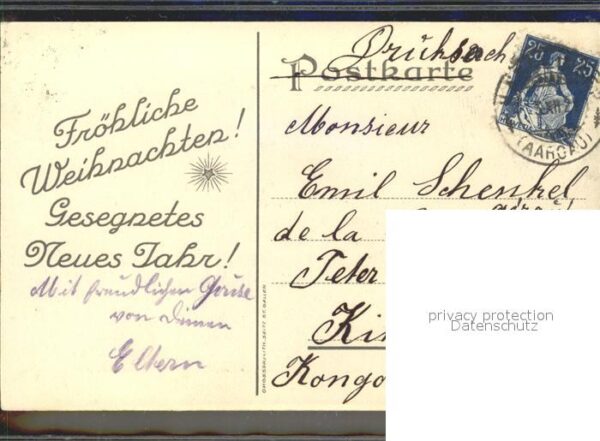 Fröhliche
Weihnachten!
Gesegnetes
Neues Jahr!
Mit freundlichen Grüße
von Deinen
Eltern
GROSSERLITH. SEITZ ST. GALLEN
Drucksach
Postkarte
25 25
HELVETIA
(AARGAU)
Monsieur
Emil Schenkel
de la
Peter
Kin
Kongo
privacy protection
Datenschutz